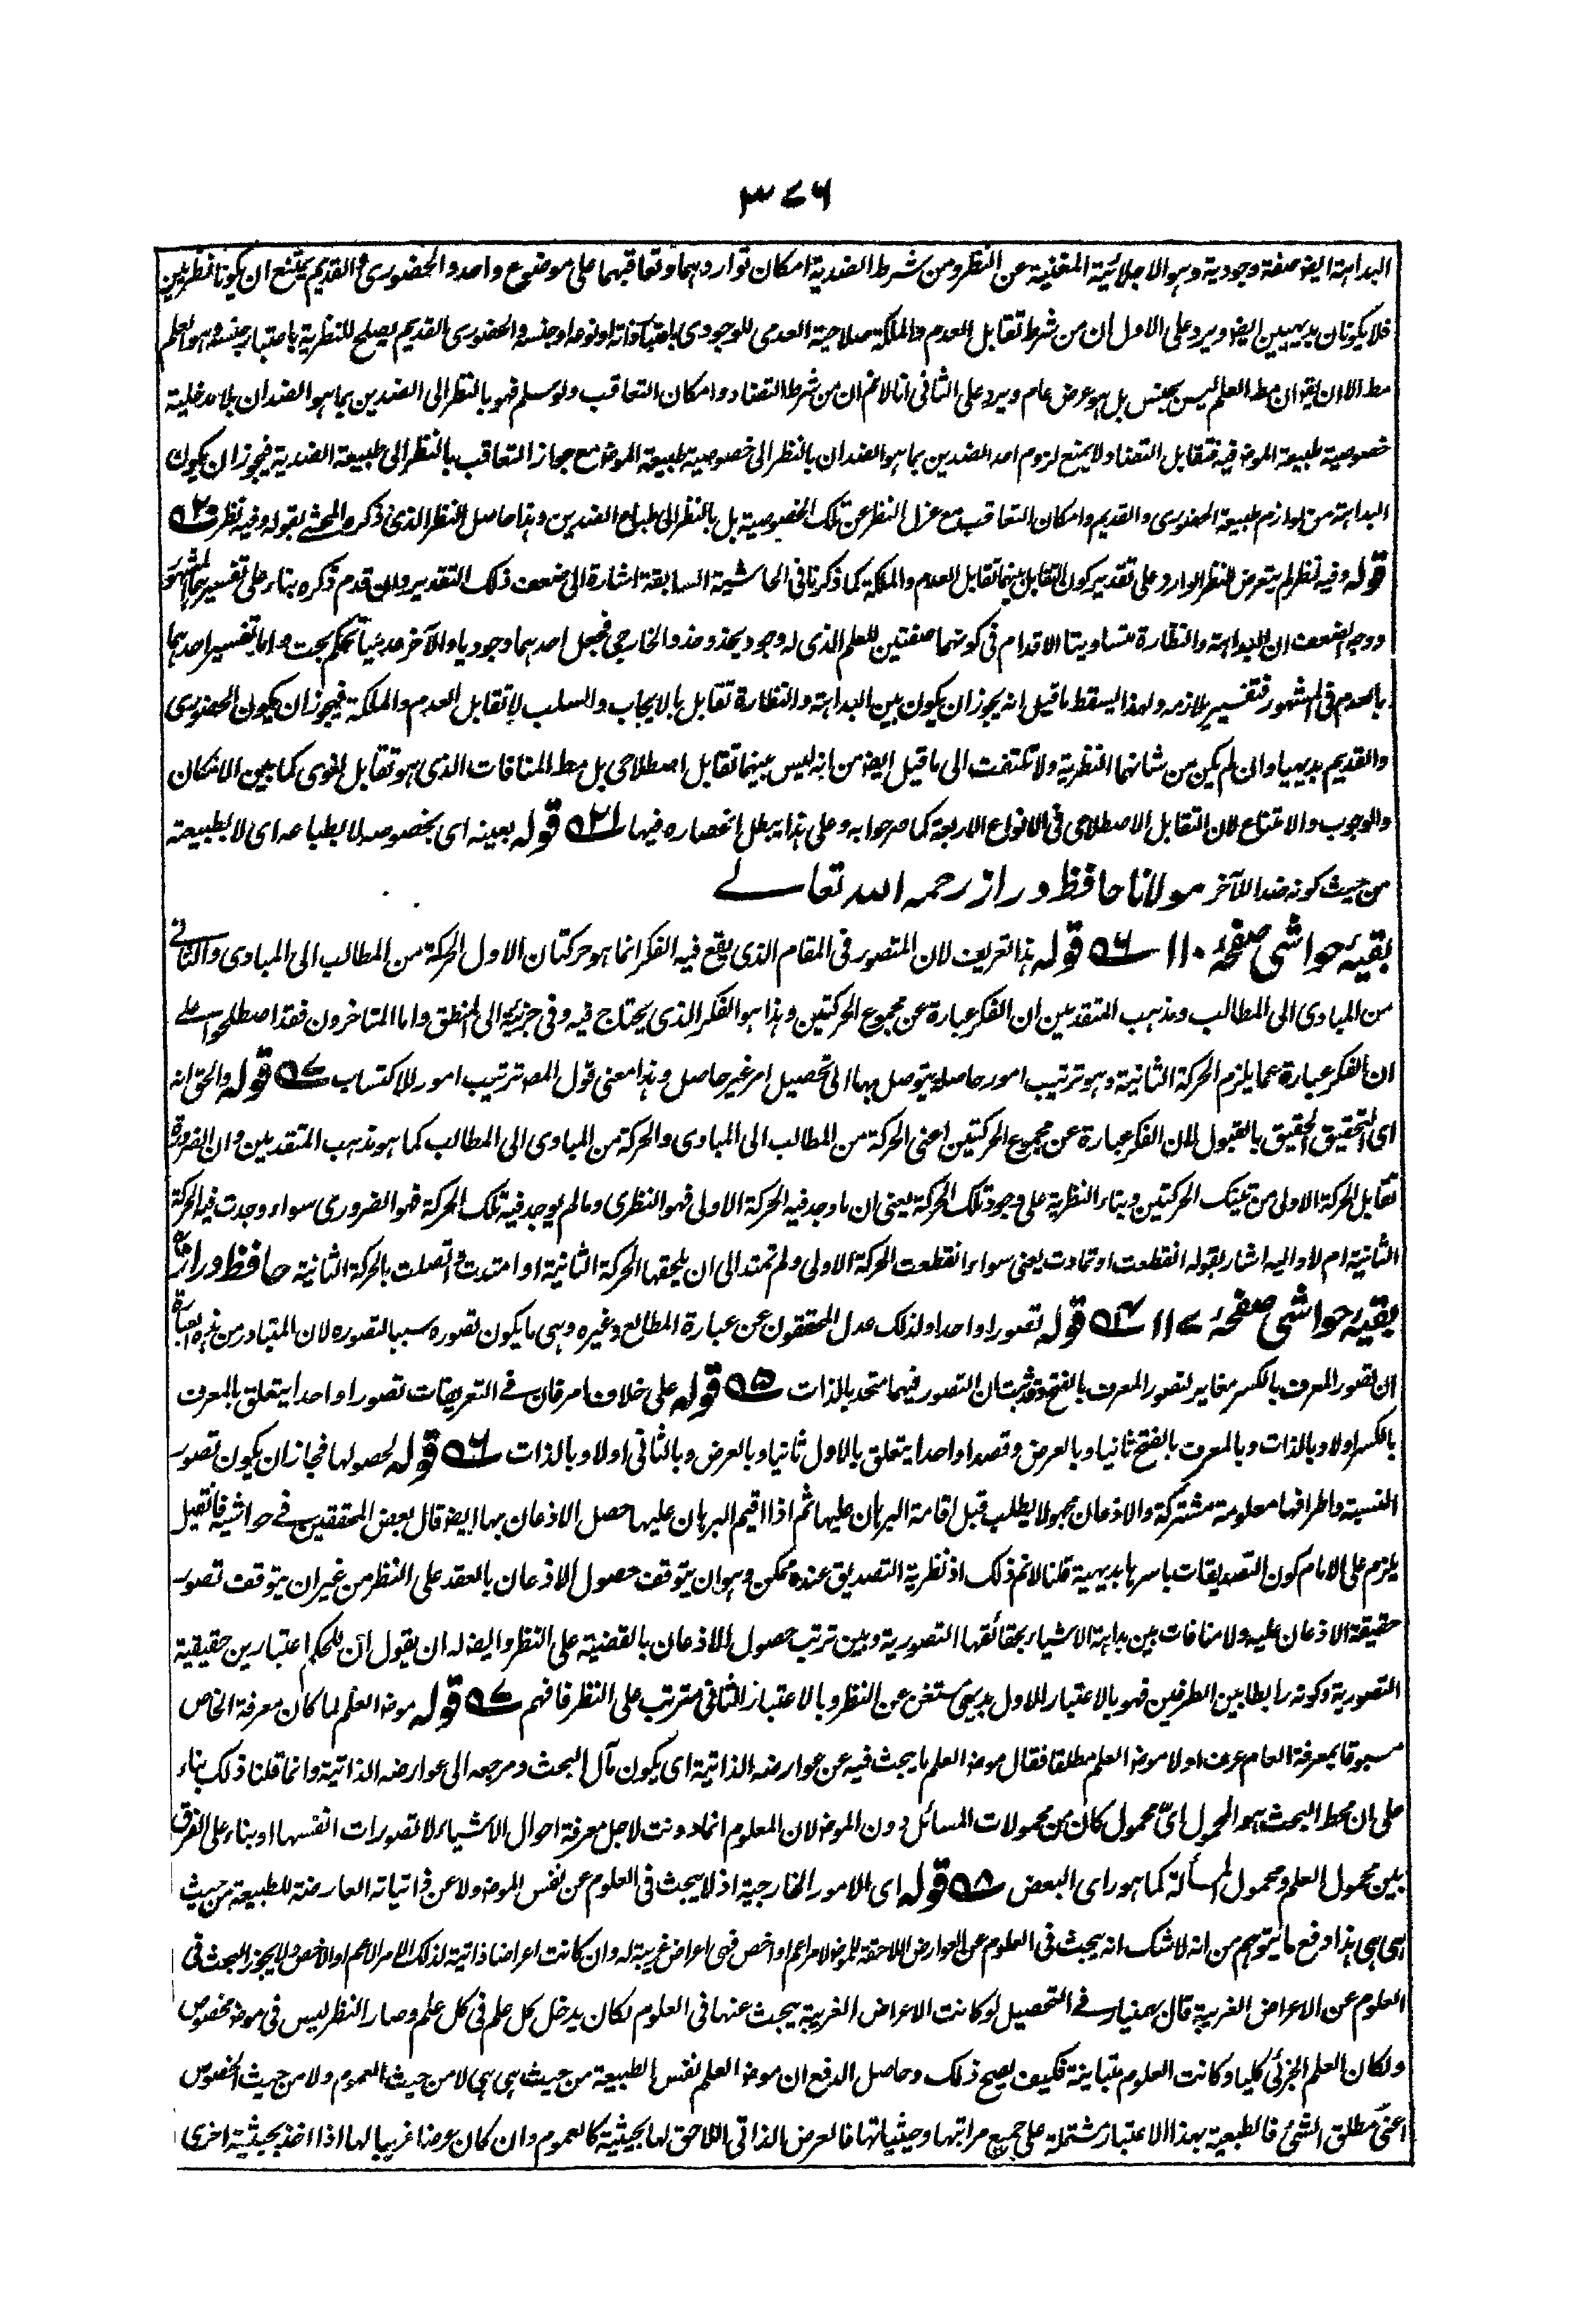 ٣٧٦
البداهة ايضا صفة وجودية وهو الاجلائية المغنية عن النظر ومن شرط الضدية امكان تواردهما وتعاقبهما على موضوع واحد والحضورى والقديم يمتنع ان يكونا نظريين
فلا يكونان بديهيين ايضا ويرد على الاول ان من شرط تقابل العدم والملكة صلاحية العدمى للوجودى باعتبار ذاته او نوعه او جنسه والحضورى القديم يصلح للنظرية باعتبار جنسه وهو العلم
مط الا ان يقو ان مط العلم ليس بجنس بل هو عرض عام ويرد على الثانى انا لا نم ان من شرط التضاد امكان التعاقب ولو سلم فهو بالنظر الى الضدين بما هو الضدان بلا مدخلية
خصوصية طبيعة الموض فيه فتقابل التضاد لا يمنع لزوم احد الضدين بما هو الضدان بالنظر الى خصوصية طبيعة الموض مع جواز التعاقب بالنظر الى طبيعة الضدية فيجوز ان يكون
البداهة من لوازم طبيعة الحضورى والقديم وامكان التعاقب مع عزل النظر عن تلك الخصوصية بل بالنظر الى طبائع الضدين وهذا حاصل النظر الذى ذكره المحشى بقوله وفيه نظر
قوله وفيه نظر لم يتعرض للنظر الوارد على تقدير كون التقابل بينهما تقابل العدم والملكة كما ذكرنا فى الحاشية السابقة اشارة الى ضعف ذلك التقدير وان قدم ذكره بناء على تفسيرهما المشهور
ووجه الضعف ان البداهة والنظارة متساويتا الاقدام فى كونهما صفتين للعلم الذى له وجود يحذو حذو الخارجى فجعل احدهما وجوديا والآخر عدميا تحكم بحت واما تفسير احدهما
بالعدم فى المشهور فتفسير بلازمه ولهذا يسقط ما قيل انه يجوز ان يكون بين البداهة والنظارة تقابل بالايجاب والسلب لا تقابل العدم والملكة فيجوز ان يكون الحضورى
والقديم بديهيا وان لم يكن من شانهما النظرية ولا تلتفت الى ما قيل ايضا من انه ليس بينهما تقابل اصطلاحى بل مط المنافات الذى هو تقابل لغوى كما بين الامكان
والوجوب والامتناع لان التقابل الاصطلاحى فى الانواع الاربعة كما صرحوا به وعلى هذا يبطل انحصاره فيها ٢١ قوله بعينه اى بخصوصه لا بطباعه اى لا بطبيعته
من حيث كونه ضدا للآخر مولانا حافظ دراز رحمه الله تعالے
بقيۂ حواشى صفحۂ ١١٠ ٦ قوله هذا تعريف لان المتصور فى المقام الذى يقع فيه الفكر انما هو حركتان الاول الحركة من المطالب الى المبادى والثانى
من المبادى الى المطالب ومذهب المتقدمين ان الفكر عبارة عن مجموع الحركتين وهذا هو الفكر الذى يحتاج فيه وفى جزئيه الى المنطق واما المتاخرون فقد اصطلحوا على
ان الفكر عبارة عما يلزم الحركة الثانية وهو ترتيب امور حاصلة يتوصل بها الى تحصيل امر غير حاصل وهذا معنى قول المص ترتيب امور للاكتساب ٧ قوله والحق انه
اى التحقيق الحقيق بالقبول ان الفكر عبارة عن مجموع الحركتين اعنى الحركة من المطالب الى المبادى والحركة من المبادى الى المطالب كما هو مذهب المتقدمين وان الضرورة
تقابل الحركة الاولى من تينك الحركتين وبناء النظرية على وجود تلك الحركة يعنى ان ما وجد فيه الحركة الاولى فهو النظرى وما لم يوجد فيه تلك الحركة فهو الضرورى سواء وجدت فيه الحركة
الثانية ام لا واليه اشار بقوله انقطعت او تمادت يعنى سواء انقطعت الحركة الاولى ولم تمتد الى ان يلحقها الحركة الثانية او امتدت واتصلت بالحركة الثانية حافظ دراز
بقيۂ حواشى صفحۂ ١١٧ قوله تصورا واحدا ولذلك عدل المحققون عن عبارة المطالع وغيره وهى ما يكون تصوره سببا لتصوره لان المتبادر من هذه العبارة
ان تصور المعرف بالكسر مغاير لتصور المعرف بالفتح وقد ثبت ان التصور فيهما متحد بالذات ٥ قوله على خلاف امر فان فے التعريفات تصورا واحدا يتعلق بالمعرف
بالكسر اولا وبالذات وبالمعرف بالفتح ثانيا وبالعرض وقصدا واحدا يتعلق بالاول ثانيا وبالعرض وبالثانى اولا وبالذات ٦ قوله لحصولها فجاز ان يكون تصور
النسبة واطرافها معلومة مشتركة والاذعان مجهولا يطلب قبل اقامة البرهان عليها ثم اذا اقيم البرهان عليها حصل الاذعان بها ايضا قال بعض المحققين فے حواشيه فان قيل
يلزم على الامام كون التصديقات باسرها بديهية قلنا لا نم ذلك اذ نظرية التصديق عنده ممكن وهو ان يتوقف حصول الاذعان بالعقد على النظر من غير ان يتوقف تصور
حقيقة الاذعان عليه ولا منافات بين بداهة الاشياء بحقائقها التصورية وبين ترتب حصول الاذعان بالقضية على النظر وايضا له ان يقول ان للحكم اعتبارين حقيقية
التصورية وكونه رابطا بين الطرفين فهو بالاعتبار الاول بديهى مستغن عن النظر وبالاعتبار الثانى مترتب على النظر فافهم ٧ قوله موض العلم لما كان معرفة الخاص
مسبوقا بمعرفة العام عرف اولا موض العلم مطلقا فقال موض العلم ما يبحث فيه عن عوارضه الذاتية اى يكون مآل البحث ومرجعه الى عوارضه الذاتية وانما قلنا ذلك بناء
على ان محط البحث هو المحمول اىّ محمول كان من محمولات المسائل دون الموض لان المعلوم انما دونت لاجل معرفة احوال الاشياء لا تصورات انفسها او بناء على الفرق
بين محمول العلم ومحمول المسألة كما هو راى البعض ٨ قوله اى الامور الخارجية اذ لا يبحث فى العلوم عن نفس الموض ولا عن ذاتياته العارضة للطبيعة من حيث
هى هى هذا دفع ما يتوهم من انه لا شك انه يبحث فى العلوم عن العوارض اللاحقة للموض لامر اعم او اخص فهى اعراض غريبة له وان كانت اعراضا ذاتية لذلك الامر الاعم او الاخص ولا يجوز البحث فى
العلوم عن الاعراض الغريبة قال بهمنيار فے التحصيل لو كانت الاعراض الغريبة يبحث عنها فى العلوم لكان يدخل كل علم فى كل علم وصار النظر ليس فى موض مخصوص
ولكان العلم الجزئى كليا وكانت العلوم متباينة فكيف يصح ذلك وحاصل الدفع ان موض العلم نفس الطبيعة من حيث هى هى لا من حيث العموم ولا من حيث الخصوص
اعنى مطلق الشئ فالطبيعة بهذا الاعتبار مشتملة على جميع مراتبها وحيثياتها فالعرض الذاتى اللاحق لها بحيثية كالعموم وان كان عرضا غريبا لها اذا اخذ بحيثية اخرى